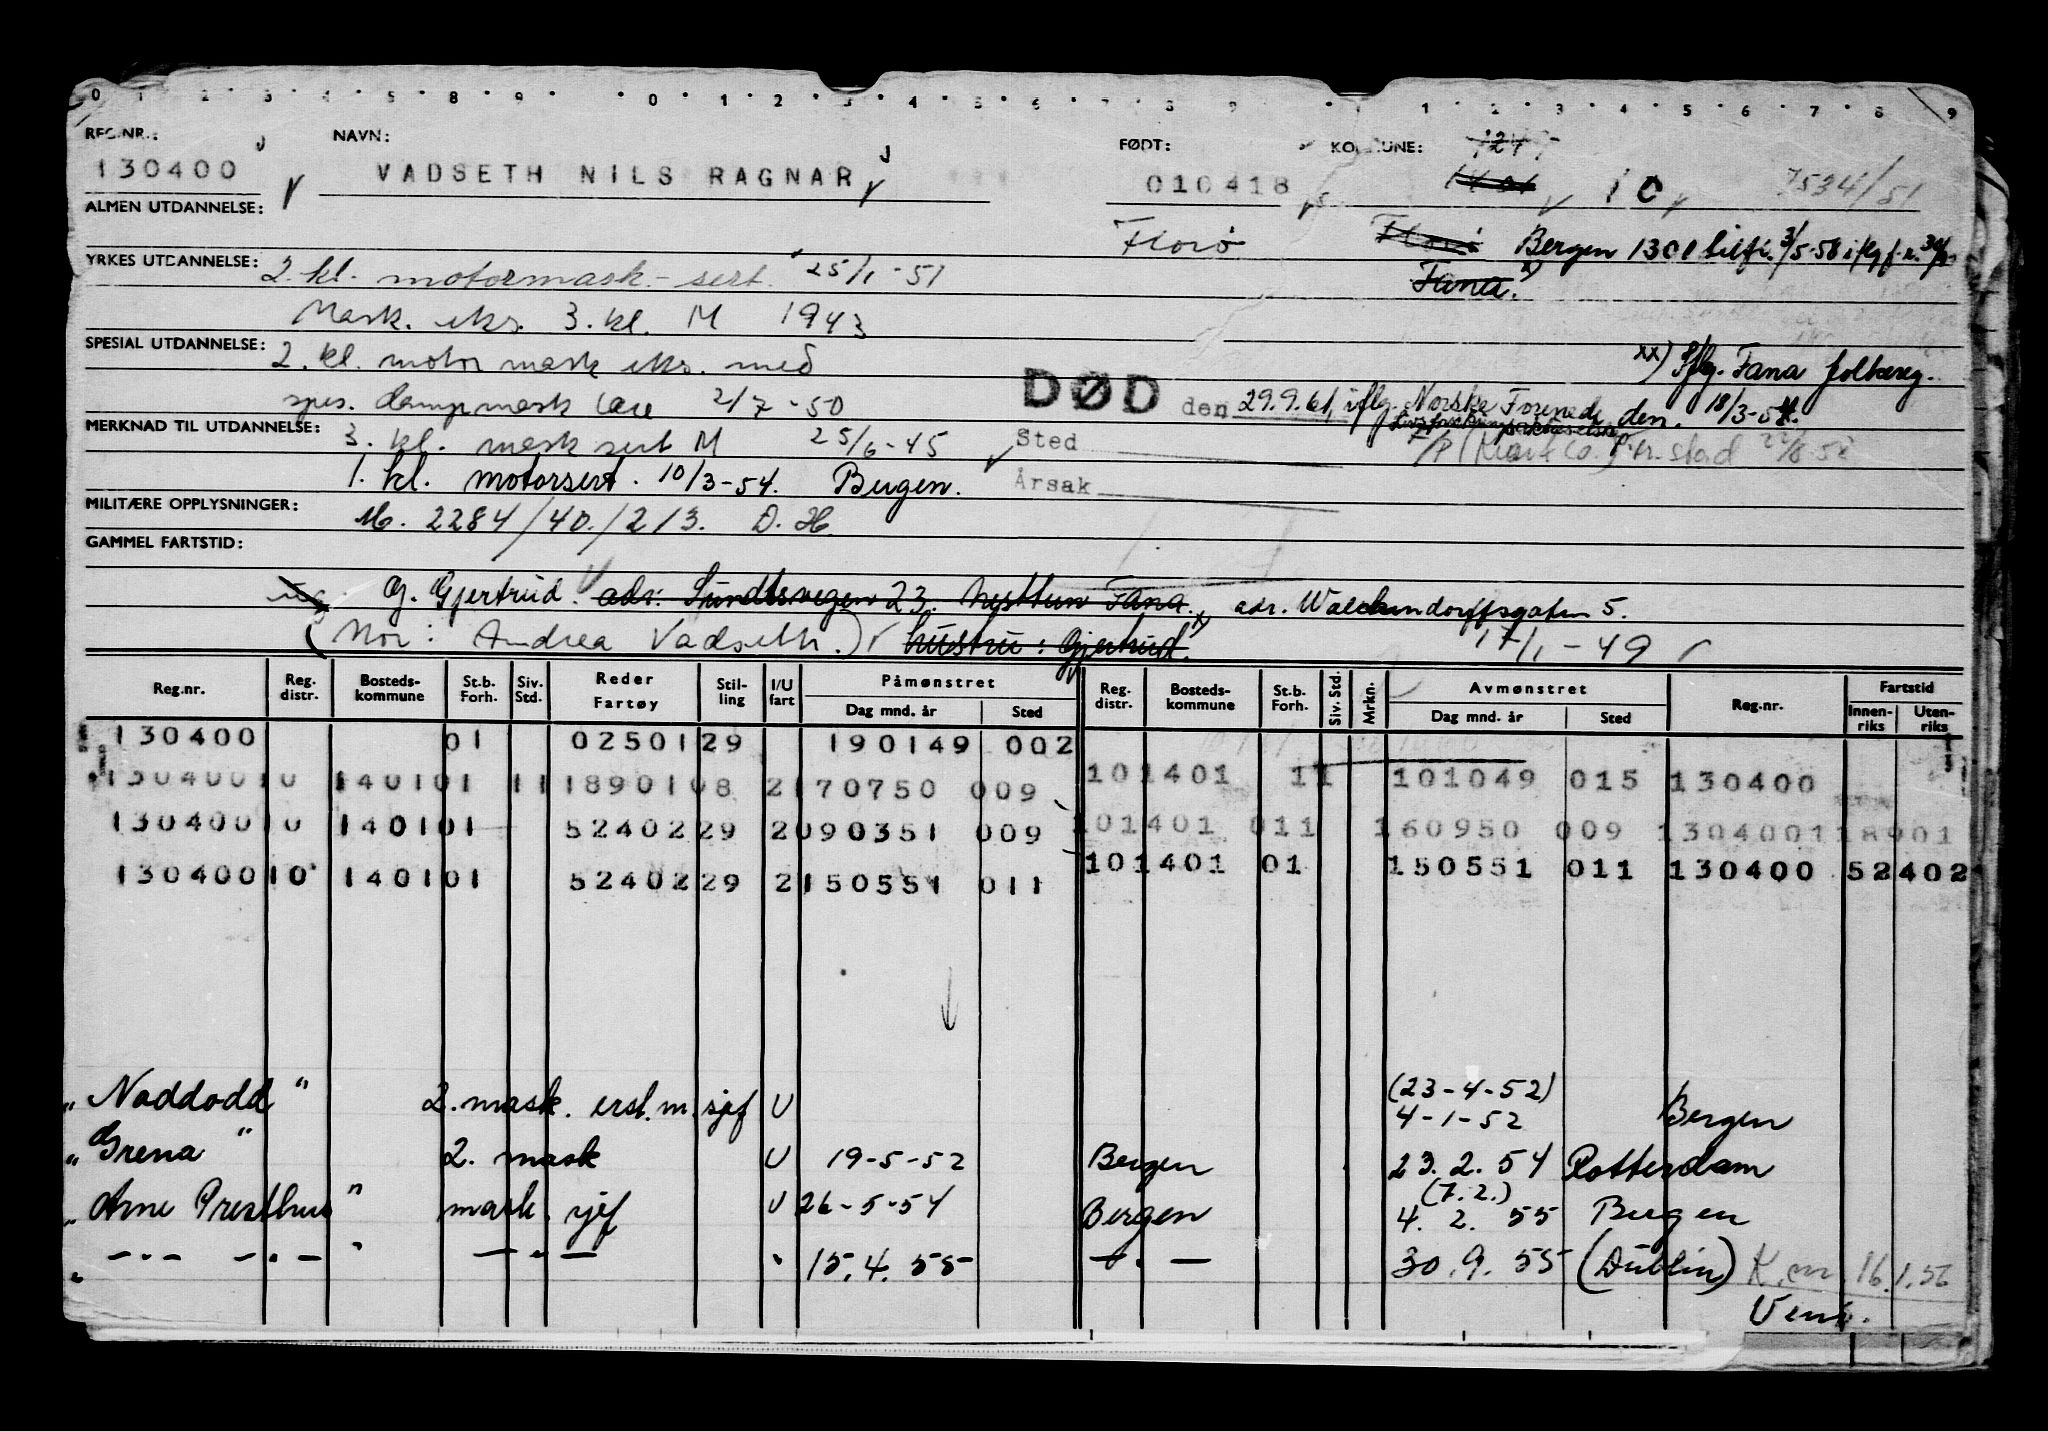 0 1 2 3 4 5 8 9 0 1 2 3 4 5 6 7 8 9 1 2 3 4 5 6 7 8 9
REG.NR.: NAVN: FØDT: KOMMUNE: 1247
130400 VADSETH NILS RAGNAR 010418 1401 10 7534/51
ALMEN UTDANNELSE: Florø Florø Bergen 1301
YRKES UTDANNELSE: 2. kl. motormask.-sert. 25/1-51 Fana. x)
Mask. eks. 3. kl. M 1943
SPESIAL UTDANNELSE: 2. kl. motor mask eks. med xx) Iflg. Fana folkereg.
spes. dampmask lære 2/7-50 DØD den 29.9.61, iflg. Norske Forenede den. 18/3-54.
MERKNAD TIL UTDANNELSE: 3. kl. mask sert M 25/6-45 Sted
1. kl. motorsert. 10/3-54. Bergen. Årsak
MILITÆRE OPPLYSNINGER: M. 2284/40./2/3. D. H.
GAMMEL FARTSTID:
ug. G. Gjertrud. adr. Sundtsvegen 23. Nesttun Fana. adr. Walckendorffsgaten 5.
(Mor: Andrea Vadseth.) hustru: Gjertrud. 17/1-49
Reg.nr. Reg. distr. Bosteds-kommune St.b. Forh. Siv. Std. Reder Fartøy Stil-ling I/U fart Påmønstret Dag mnd. år Sted Reg. distr. Bosteds-kommune St.b. Forh. Siv. Std. Mrkn. Avmønstret Dag mnd. år Sted Reg.nr. Fartstid Innen-riks Uten-riks
130400 01 02501 29 190149 002
101401 11 101049 015 130400
130400 10 1401 01 11 18901 08 2 170750 009
101401 011 160950 009 130400 118901
130400 10 1401 01 52402 29 2 090351 009
101401 01 150551 011 130400 52402
130400 10 1401 01 52402 29 2 150551 011
"Naddodd" 2. mask. erst. m. sjef U (23-4-52) 4-1-52 Bergen
"Grena" 2. mask U 19-5-52 Bergen 23.2.54 Rotterdam
"Arne Presthus" mask. sjef U 26-5-54 Bergen (7.2.) 4.2.55 Bergen
15.4.55 30.9.55 (Dublin) K.m. 16.1.56